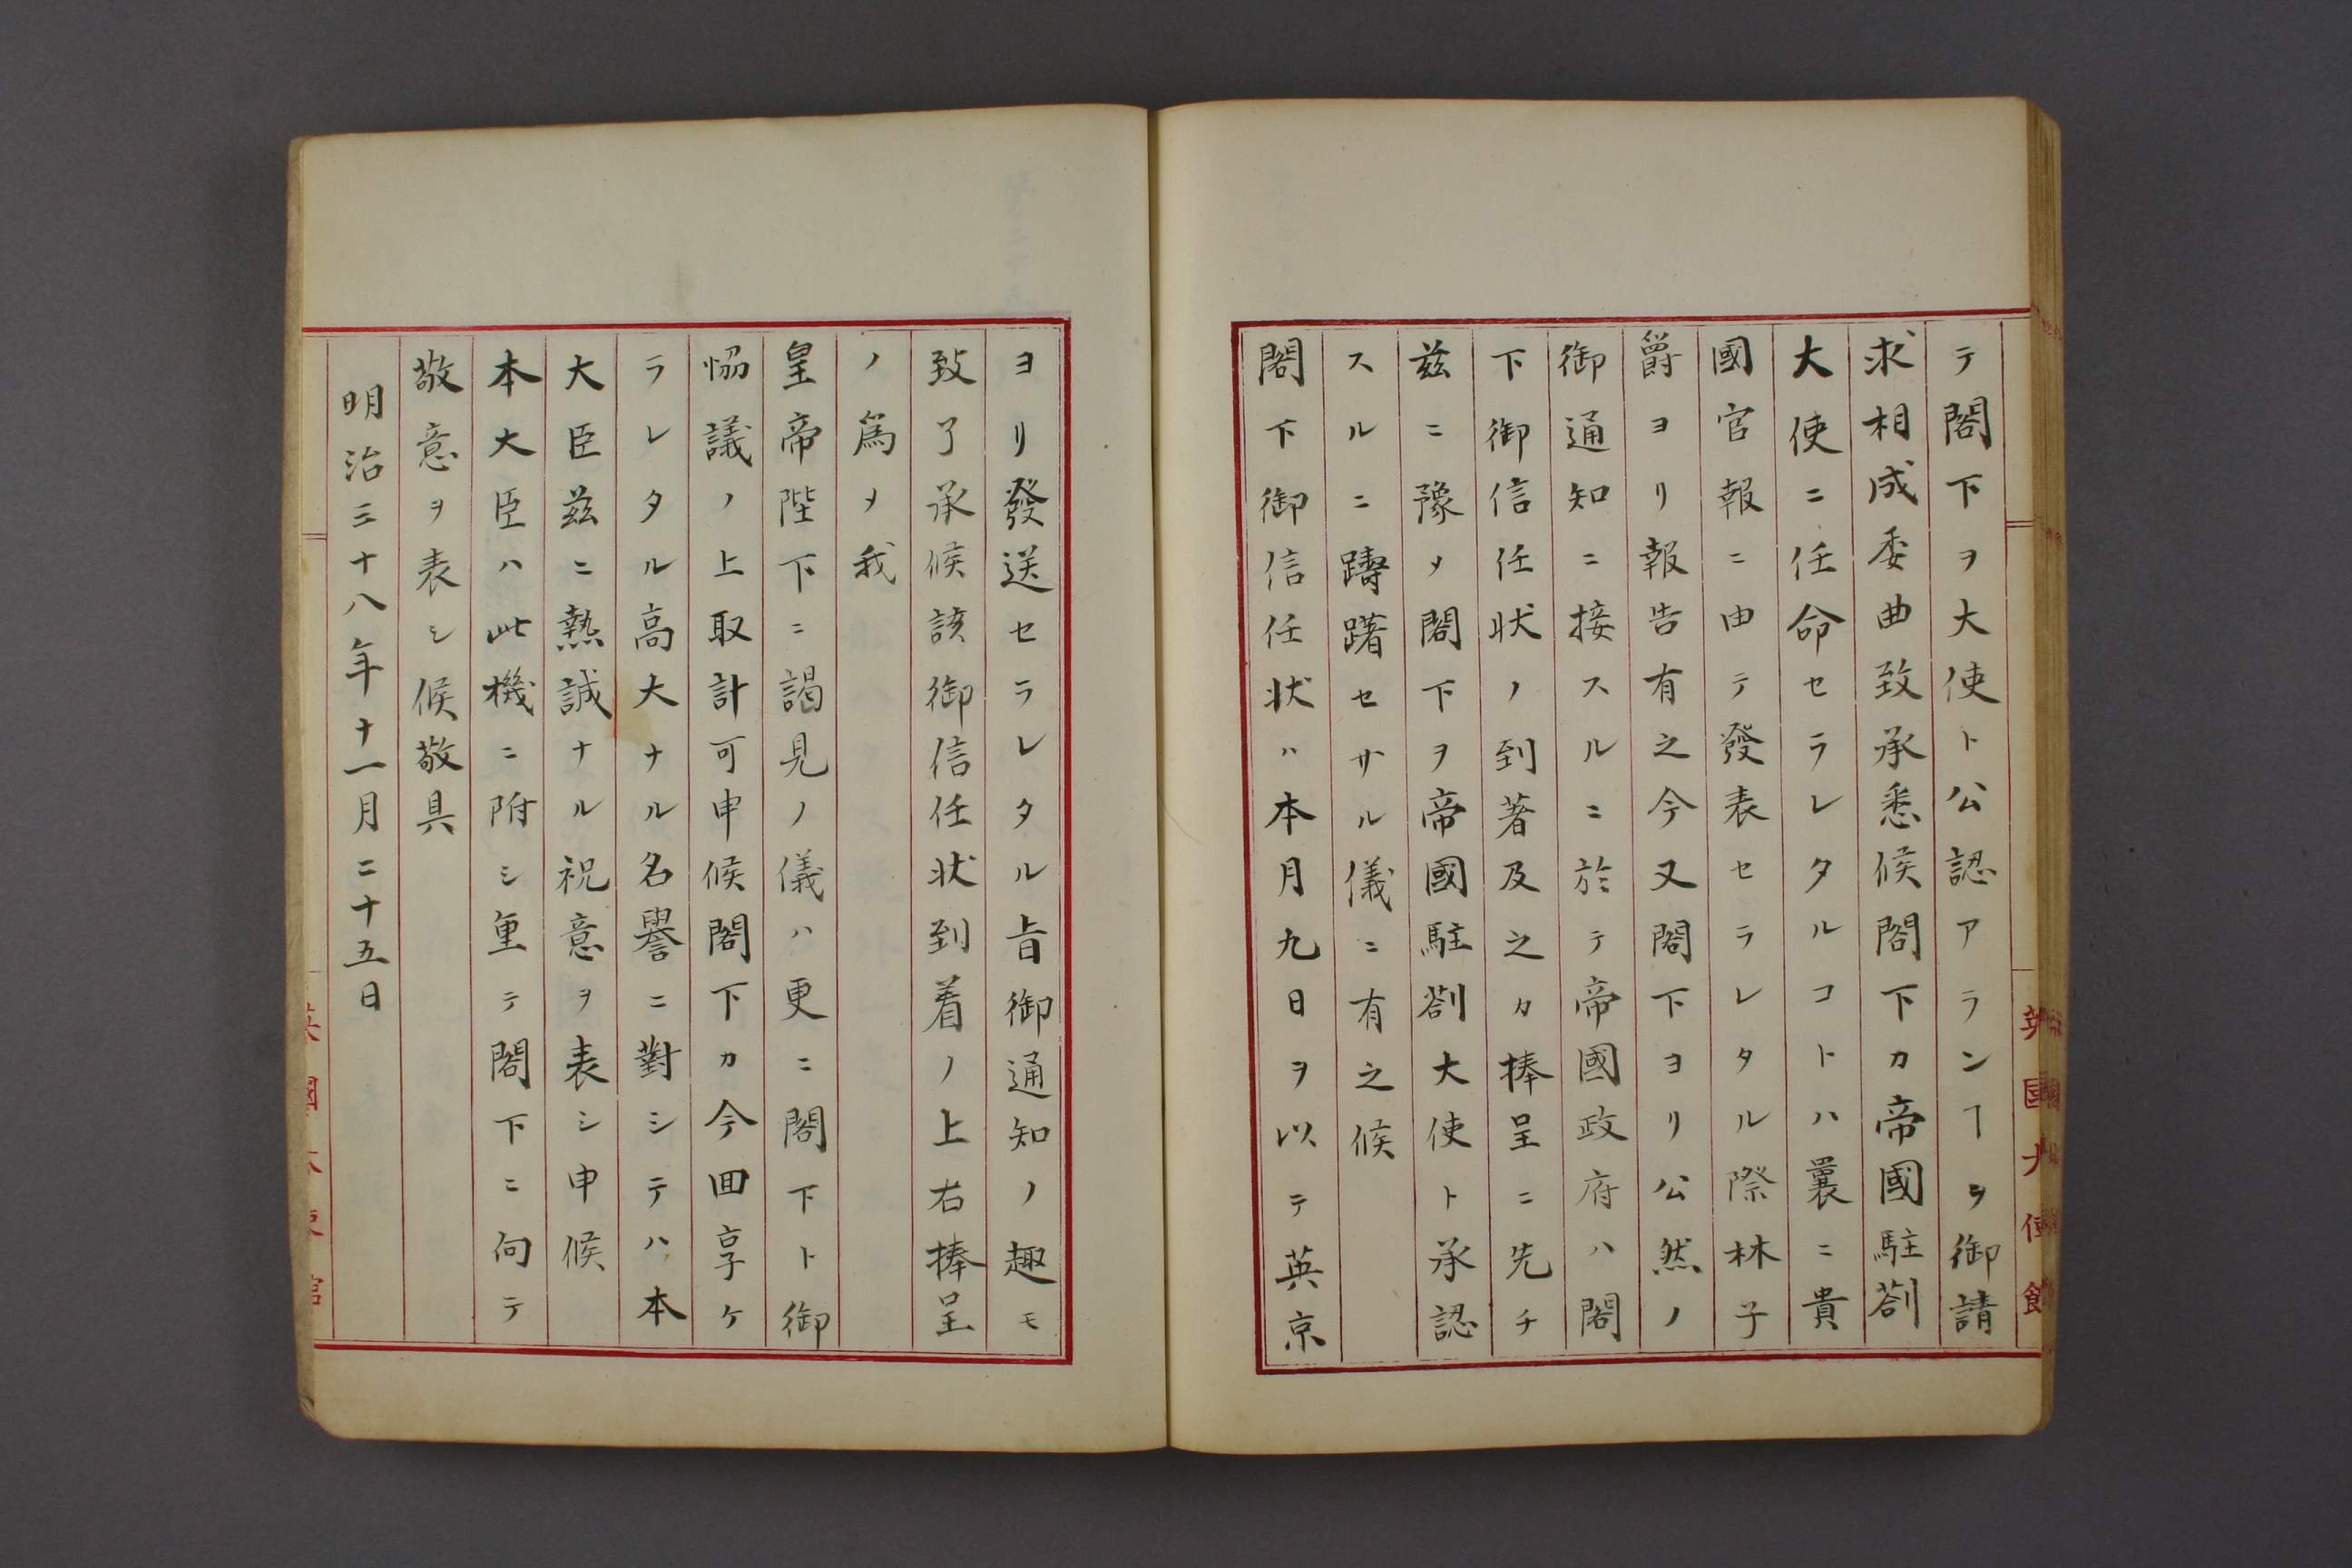 テ閣下ヲ大使ト公認アランヿヲ御請
求相成委曲致承悉候閣下カ帝國駐剳
大使ニ任命セラレタルコトハ曩ニ貴
國官報ニ由テ發表セラレタル際林子
爵ヨリ報告有之今又閣下ヨリ公然ノ
御通知ニ接スルニ於テ帝國政府ハ閣
下御信任状ノ到著及之カ捧呈ニ先チ
茲ニ豫メ閣下ヲ帝國駐剳大使ト承認
スルニ躊躇セサル儀ニ有之候
閣下御信任状ハ本月九日ヲ以テ英京
英國大使館
ヨリ發送セラレタル旨御通知ノ趣モ
致了承候該御信任状到着ノ上右捧呈
ノ為メ我
皇帝陛下ニ謁見ノ儀ハ更ニ閣下ト御
恊議ノ上取計可申候閣下カ今回享ケ
ラレタル高大ナル名譽ニ對シテハ本
大臣茲ニ熱誠ナル祝意ヲ表シ申候
本大臣ハ此機ニ附シ重テ閣下ニ向テ
敬意ヲ表シ候敬具
明治三十八年十一月二十五日